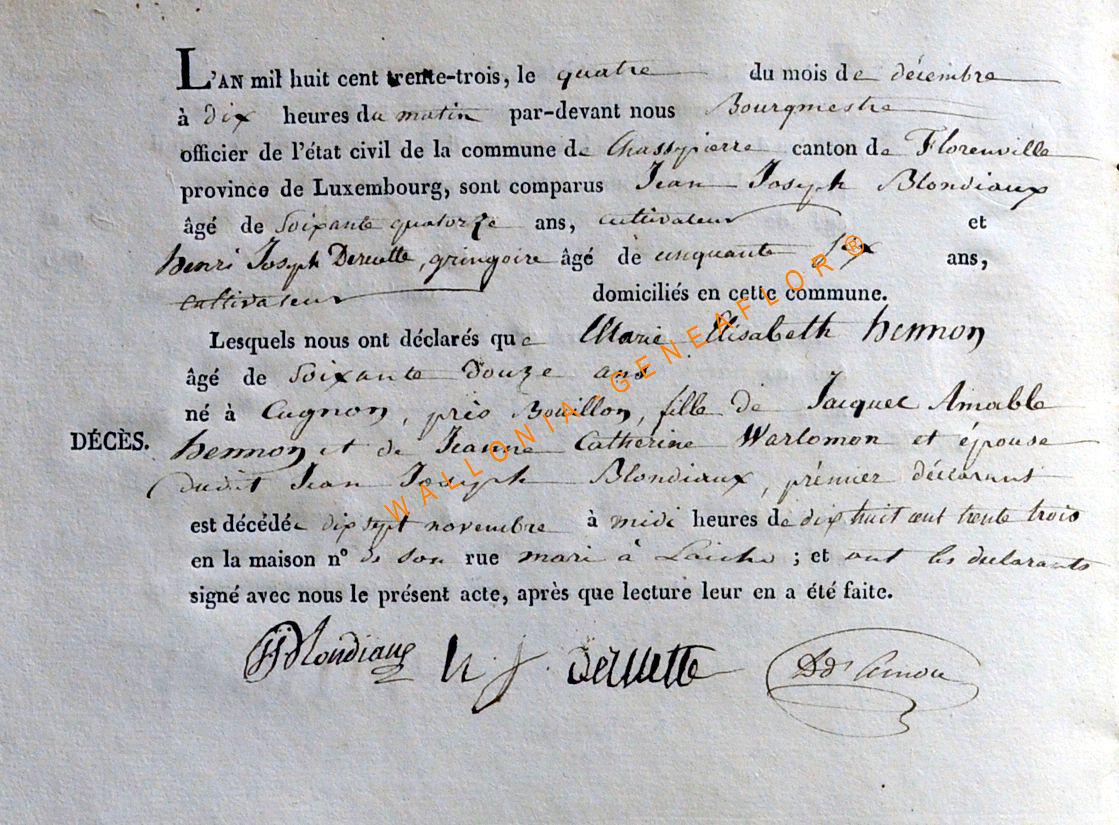 L'AN mil huit cent trente-trois, le quatre du mois de décembre
à dix heures du matin par-devant nous Bourgmestre
officier de l'état civil de la commune de Chassepierre canton de Florenville
province de Luxembourg, sont comparus Jean Joseph Blondiaux
âgé de soixante quatorze ans, cultivateur et
henri Joseph Deruette, gringoire âgé de cinquante six ans,
cultivateur domiciliés en cette commune.
Lesquels nous ont déclarés que Marie Elisabeth hennon
âgé de soixante douze ans
né à Cugnon, près Bouillon, fille de Jacques Amable
DÉCÈS. hennon et de Jeanne Catherine Warlomon et épouse
dudit Jean Joseph Blondiaux, prémier déclarant
est décédée dix sept novembre à midi heures de dix huit cent trente trois
en la maison n° de son rue mari à Laiche ; et ont les déclarants
signé avec nous le présent acte, après que lecture leur en a été faite.
JJ Blondiaux h. j. deruette
WALLONIA-GENEAFLOR®